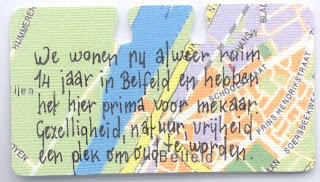 HUMMEREN
We wonen nu alweer ruim
14 jaar in Belfeld en hebben
het hier prima voor mekaar.
Gezelligheid, natuur, vrijheid
een plek om oud te worden.
ijen
Belfeld
SCHOOL
PRINS HENDRIKSTRAAT
SOERSBEEKW